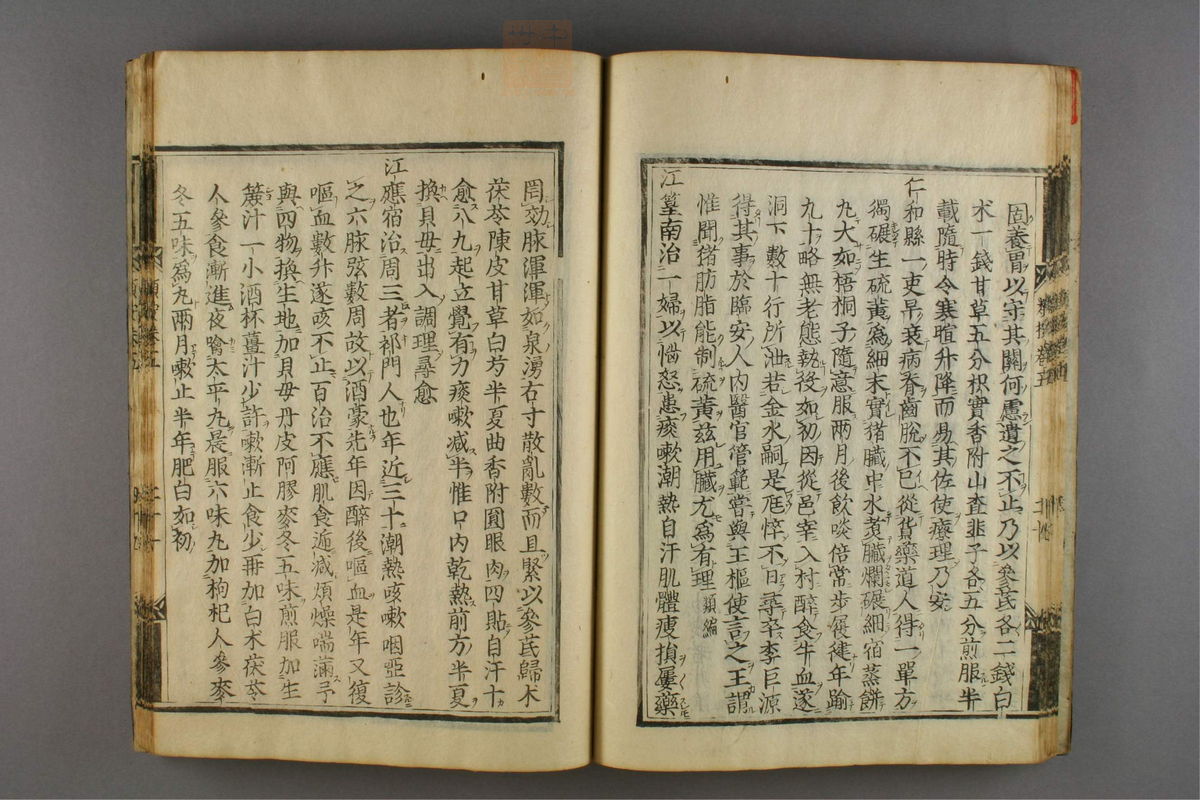 固養胃以守其關何慮遺之不止乃以參茋各二錢白
朮一錢甘草五分枳實香附山査韭子各五分煎服半
載隨時令寒暄升降而易其佐使療理乃安
仁和縣一吏早衰病瘠齒脫不已從貨藥道人得一單方
獨碾生硫黃爲細末實猪臟中水煮臟爛碾細宿蒸餅
丸大如梧桐子隨意服兩月後飲啖倍常步履徤年踰
九十略無老態執役如初因從邑宰入村醉食牛血遂
洞下數十行所泄若金水嗣是尫悴不日尋卒李巨源
得其事於臨安人内醫官管範嘗與王樞使言之王謂
惟聞猪肪脂能制硫黃茲用臟尤爲有理類編
江篁南治一婦以惱怒患痰嗽潮熱自汗肌體瘦損屢藥
罔効脉渾渾如泉湧右寸散亂數而且緊以參茋歸朮
茯苓陳皮甘草白芍半夏曲香附圓眼肉四貼自汗十
愈八九起立覺有力痰嗽减半惟口内乾熱前方半夏
換貝母出入調理尋愈
江應宿治周三者祁門人也年近三十潮熱咳嗽咽啞診
之六脉弦數周故以酒豪先年因醉後嘔血是年又復
嘔血數升遂咳不止百治不應肌食遞减煩燥喘滿予
與四物換生地加貝母丹皮阿膠麥冬五味煎服加生
䈥汁一小酒杯薑汁少許嗽漸止食少再加白朮茯苓
人參食漸進夜噙太平丸晨服六味丸加枸杞人參麥
冬五味爲丸兩月嗽止半年肥白如初